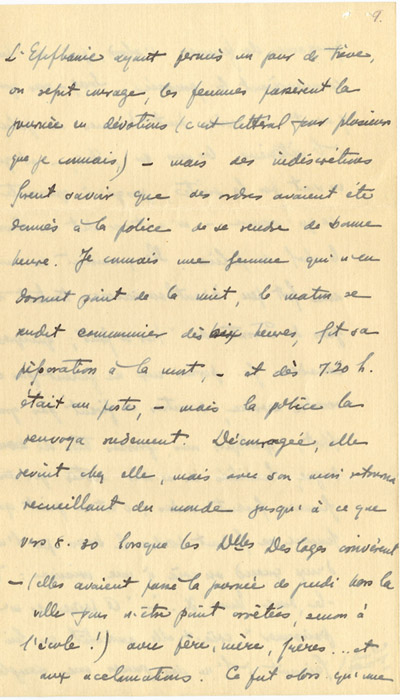 9.
L'Epiphanie ayant permis un jour de trève,
on reprit courage, les femmes passèrent la
journée en dévotions (c'est littéral pour plusieurs
que je connais,) - mais des indiscrétions
firent savoir que des ordres avaient été
donnés à la police de se rendre de bonne
heure. Je connais une femme qui n'en
dormit point de la nuit, le matin se
rendit communier dès six heures, fit sa
préparation à la mort, - et dès 7.20 h.
était au poste, - mais la police la
renvoya rudement. Découragée, elle
revint chez elle, mais avec son mari retourna
recueillant du monde jusqu'à ce que
vers 8.30 lorsque les Dlles Desloges arrivèrent
- (elles avaient passé la journée de jeudi hors la
ville pour n'être point arrêtées, sinon à
l'école!) avec père, mère, frères... et
aux acclamations. Ce fut alors qu'une